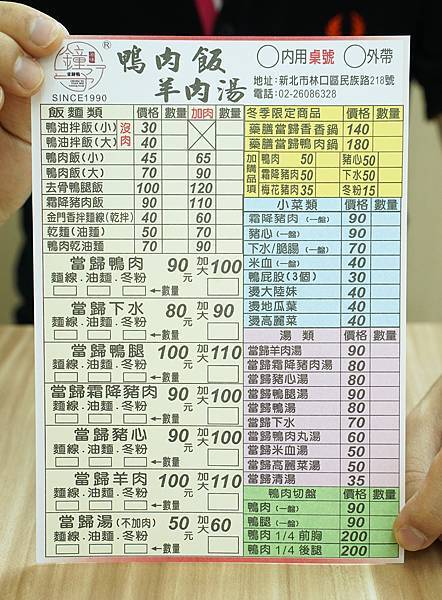 鐘 ®
SINCE1990
鴨肉飯
羊肉湯
○內用桌號 ○外帶
地址:新北市林口區民族路218號
電話:02-26086328
飯麵類 價格 數量 加肉 數量
鴨油拌飯(小) 沒肉 30
鴨油拌飯(大) 40
鴨肉飯(小) 45 65
鴨肉飯(大) 70 90
去骨鴨腿飯 100 120
霜降豬肉飯 90 110
金門香拌麵線(乾拌) 40 60
乾麵(油麵) 50 70
鴨肉乾油麵 70 90
當歸鴨肉 90元 加大100
麵線.油麵.冬粉
←數量
當歸下水 80元 加大90
麵線.油麵.冬粉
←數量
當歸鴨腿 100元 加大110
麵線.油麵.冬粉
←數量
當歸霜降豬肉 90元 加大100
麵線.油麵.冬粉
←數量
當歸豬心 90元 加大100
麵線.油麵.冬粉
←數量
當歸羊肉 100元 加大110
麵線.油麵.冬粉
←數量
當歸湯(不加肉) 50元 加大60
麵線.油麵.冬粉
←數量
冬季限定商品 價格 數量
藥膳當歸香香鍋 140
藥膳當歸鴨肉鍋 180
加購品項
鴨肉 50 豬心50
霜降豬肉50 下水50
梅花豬肉35 冬粉15
小菜類 價格 數量
霜降豬肉(一盤) 90
豬心(一盤) 90
下水/脆腸(一盤) 70
米血(一盤) 40
鴨屁股(3個) 30
燙大陸妹 40
燙地瓜葉 40
燙高麗菜 40
湯類 價格 數量
當歸羊肉湯 90
當歸霜降豬肉湯 80
當歸豬心湯 80
當歸鴨腿湯 90
當歸鴨湯 80
當歸下水 70
當歸鴨肉丸湯 60
當歸米血湯 50
當歸高麗菜湯 50
當歸清湯 35
鴨肉切盤 價格 數量
鴨肉(一盤) 90
鴨腿(一盤) 90
鴨肉 1/4 前胸 200
鴨肉 1/4 後腿 200